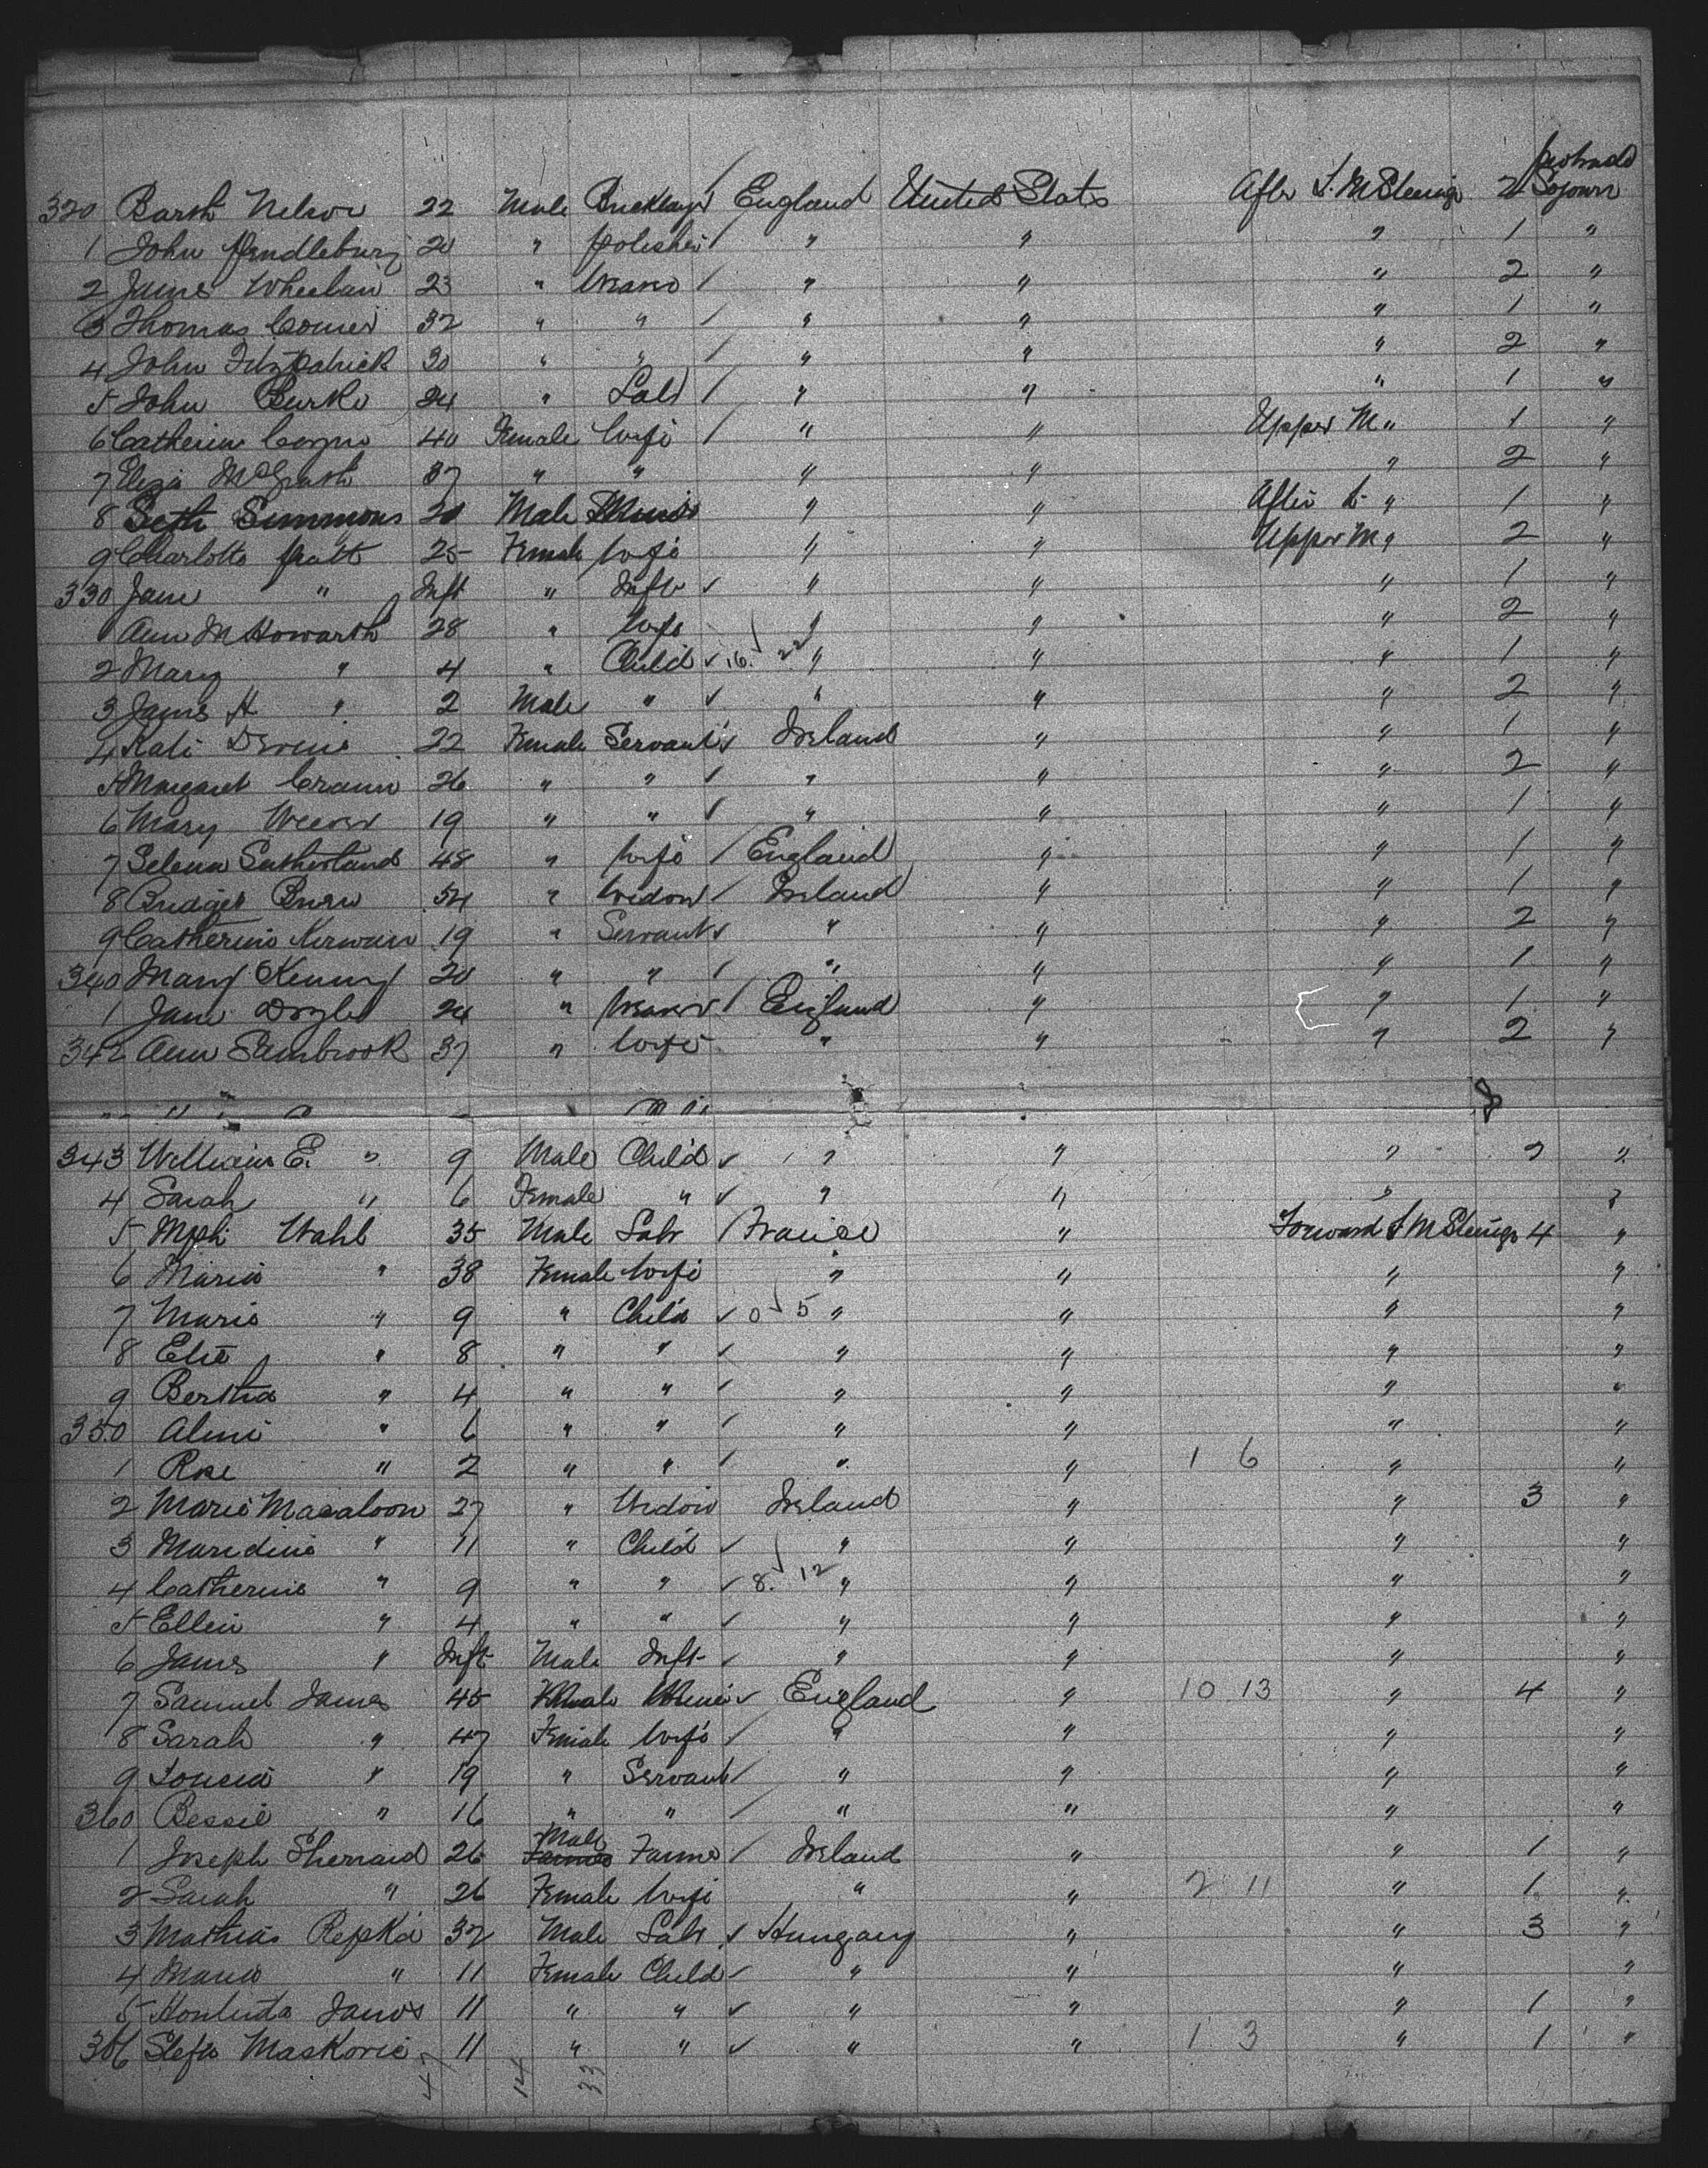 protracted
320 Barth Nelson 22 Male Bricklayer / England United States After S. M Steerage 2 Sojourn
1 John Pendlebury 20 " polisher / " " " 1 "
2 James Wheelan 23 " Weaver / " " " 2 "
3 Thomas Comer 32 " " / " " " 1 "
4 John Fitzpatrick 30 " " / " " " 2 "
5 John Burke 24 " Labr / " " " 1 "
6 Catherine 40 Female Wife / " " Upper M " 1 "
7 Eliza McGrath 37 " " " " " 2 "
8 Seth Simmons 20 Male " " After " 1 "
9 Charlotte Pratt 25 Female Wife " " Upper M " 2 "
330 Jane " Inft " Inft ✓ " " " 1 "
1 Ann M Howarth 28 " Wife " " " 2 "
2 Mary " 4 " Child ✓ 16. ✓ 22 " " " 1 "
3 James H " 2 Male " ✓ " " " 2 "
4 Kate Devine 22 Female Servant ✓ Ireland " " 1 "
5 Margaret 26 " " ✓ " " " 2 "
6 Mary Weever 19 " " ✓ " " " 1 "
7 Selena Sutherland 48 " Wife / England " " 1 "
8 Bridget 54 " Widow / Ireland " " 1 "
9 Catherine Kerwan 19 " Servant ✓ " " " 2 "
340 Mary Kenny 20 " " / " " " 1 "
1 Jane Doyle 24 " Weaver / England " " 1 "
342 Ann Sambrook 37 " Wife " " " 2 "
343 William E. " 9 Male Child ✓ " " " 2 "
4 Sarah " 6 Female " ✓ " " " "
5 Wahl 35 Male Labr / France " Forward S M Steerage 4 "
6 Maria " 38 Female Wife " " " "
7 Marie " 9 " Child ✓ 0 ✓ 5 " " " "
8 Elise " 8 " " ✓ " " " "
9 Bertha " 4 " " ✓ " " " "
350 Aline " 6 " " ✓ " " " "
1 Rose " 2 " " ✓ " " 1 6 " "
2 Marie Macaloon 27 " Widow Ireland " " 3 "
3 " 11 " Child ✓ " " " "
4 Catherine " 9 " " ✓ 8. ✓ 12 " " " "
5 Ellen " 4 " " ✓ " " " "
6 James " Inft Male Inft ✓ " " " "
7 Samuel James 45 Male Miner ✓ England " 10 13 " 4 "
8 Sarah " 47 Female Wife / " " " "
9 Loucia " 19 " Servant / " " " "
360 Bessie " 16 " " / " " " "
1 Joseph Sherraid 26 Male Farmer / Ireland " " 1 "
2 Sarah " 26 Female Wife " " 2 11 " 1 "
3 Mathias Repka 32 Male Labr ✓ Hungary " " 3 "
4 Maria " 11 Female Child ✓ " " " "
5 Janos 11 " " ✓ " " " 1 "
366 Maskovic 11 " " ✓ " " 1 3 " 1 "
47 14 33